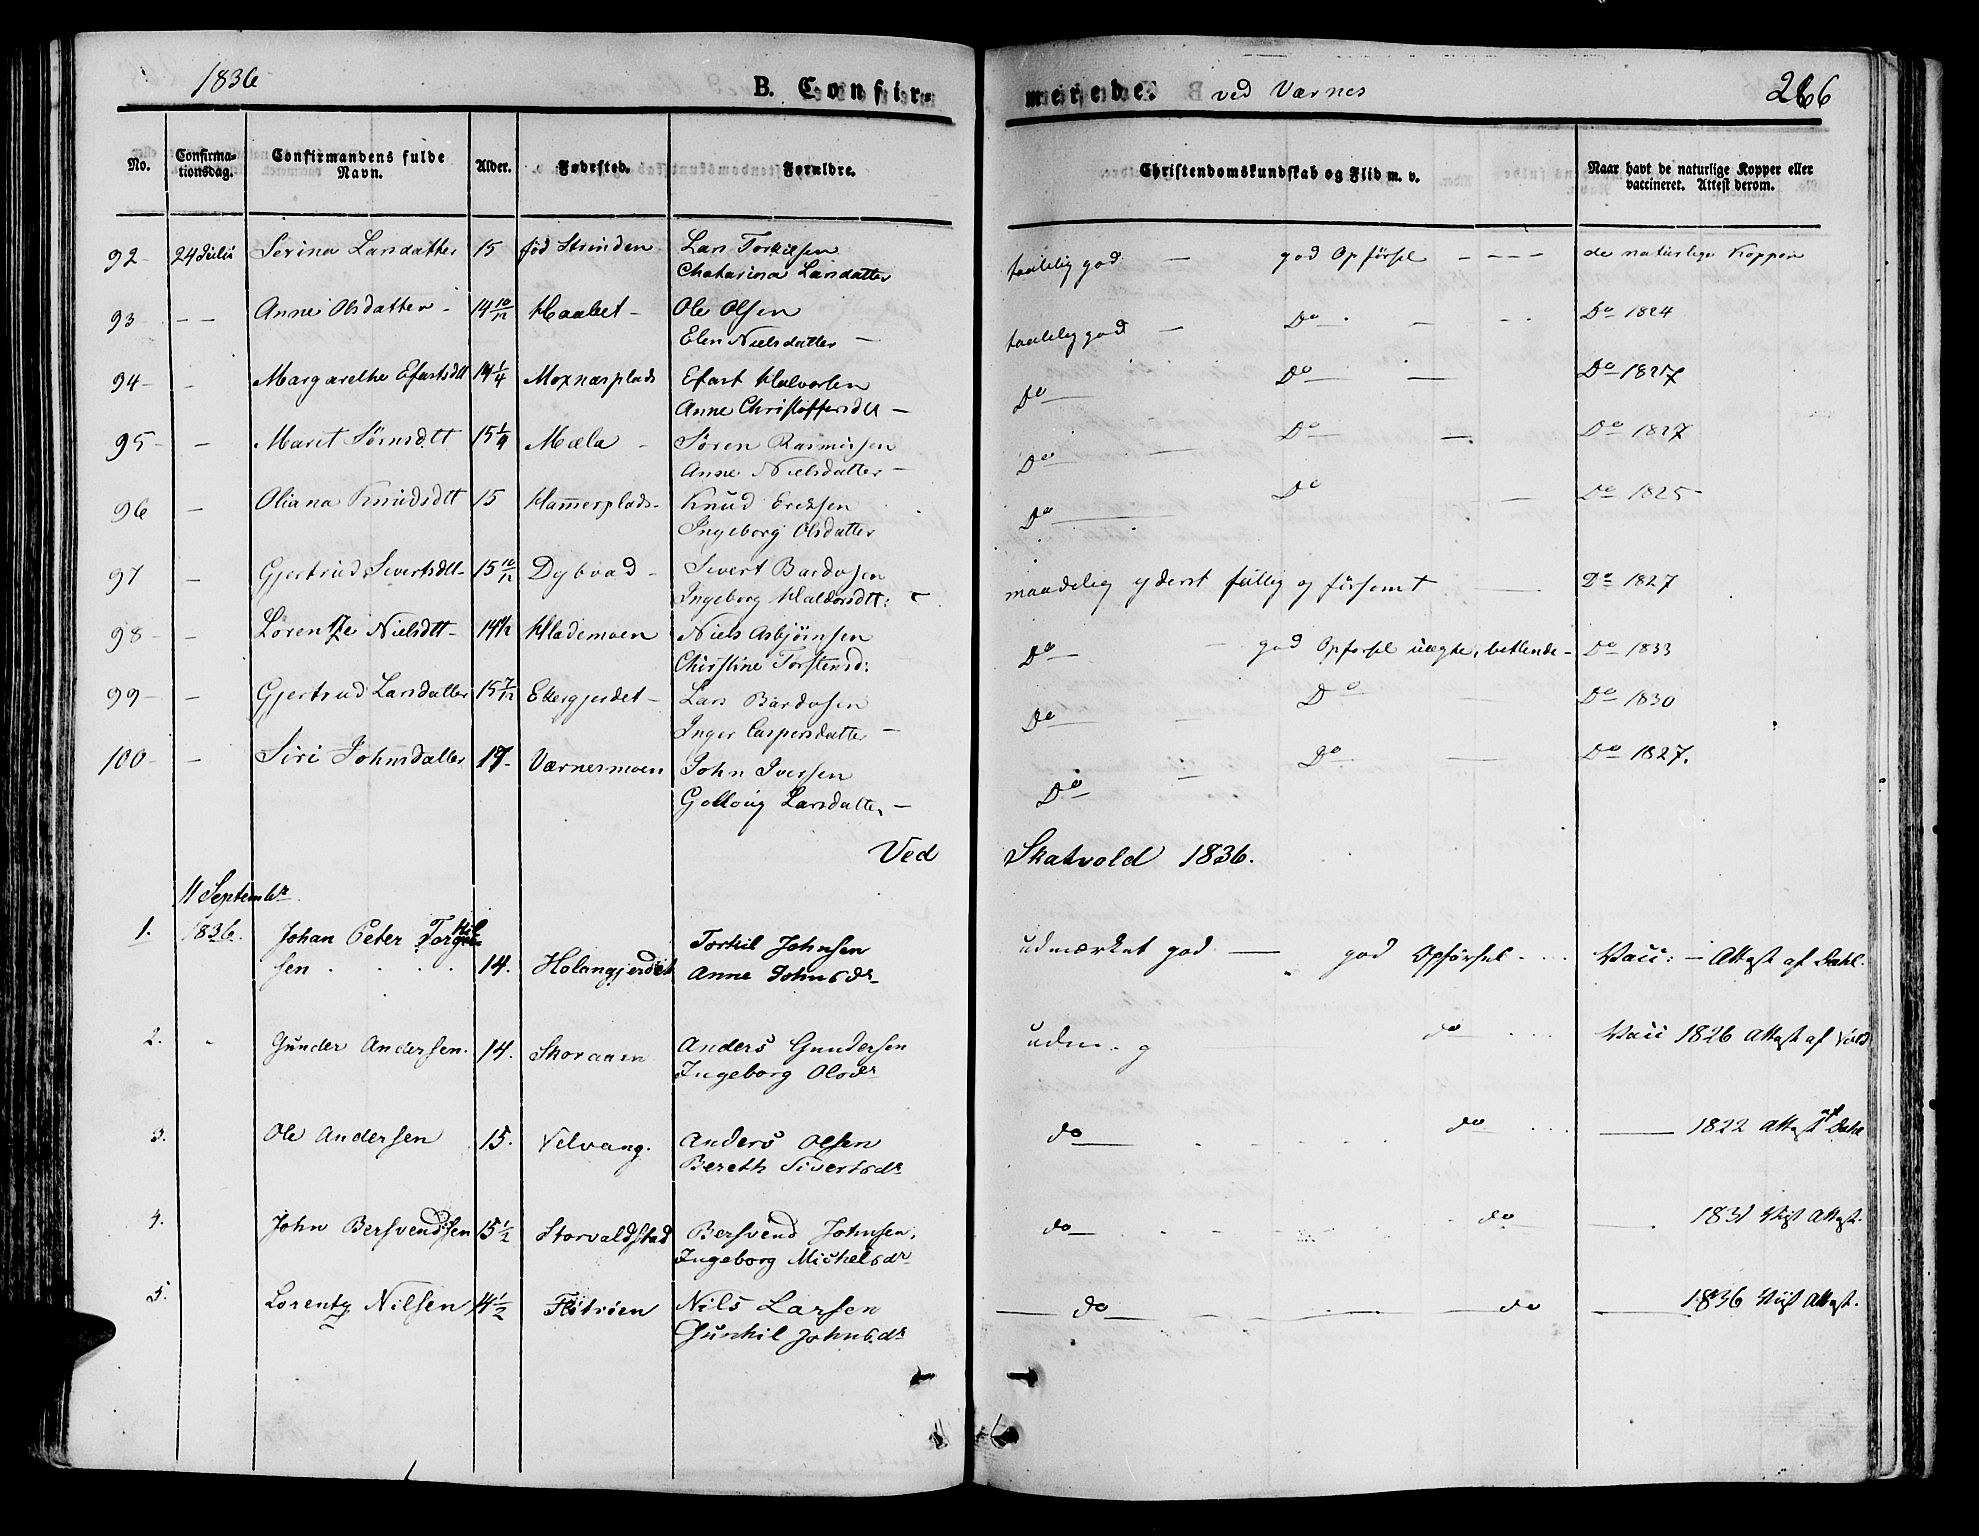 1836
B. Confir-
merede.
ved Værnes
266
No.
Confirma-
tionsdag.
Confirmandens fulde
Navn.
Alder.
Fødested.
Forældre.
Christendomskundskab og Flid m. v.
Naar havt de naturlige Kopper eller
vaccineret. Attest derom.
92 - 24 Julii Serina Larsdatter 15 fød Strinden Lars Torkilsen taalelig god - god Opførsel - - - - de naturlige Kopper
Chatarina Larsdatter
93 - - - Anne Olsdatter - 14 10/12 Haabet - Ole Olsen taalelig god - Do - Do 1824
Elen Nielsdatter -
94 - - Margarethe Efastsdtt 14 1/4 Moxnæsplads Efast Halvorsen Do - Do - Do 1827
Anne Christoffersdtt -
95 - - Maret Sørnsdtt 15 1/4 Mæla - Søren Rasmusen Do - Do - Do 1827
Anne Nielsdatter -
96 - Oliana Knudsdtt 15 Hammerplads - Knud Ericksen Do - Do - Do 1825
Ingeborg Olsdatter
97 - Gjertrud Sivertsdtt - 15 10/12 Dybvad - Sivert Bardosen maadelig yderst og forsømt - Do 1827
Ingeborg Haldorsdtt:
98 - - Lorentze Nielsdtt - 14 1/2 Hlademoen Niels Asbjørnsen Do - - god Opførsel uægte, betlende - Do 1833
Christine Torstensd:
99 - - Gjertrud Larsdatter 15 7/12 Ekergjerdet - Lars Bardosen Do - Do - Do 1830
Inger Caspersdatter -
100 - - Siri Johnsdatter 17 - Værnesmoen John Iversen Do - Do - Do 1827.
Larsdatter -
Ved Skatvold 1836.
11 Septembr
1. 1836. Johan Peter Torkil-
sen . . . . 14. Holangjerdet Torkil Johnsen udmærket god - god Opførsel . . . Vacc: - Attest af Dahl.
Anne Johnsdr
2. Gunder Andersen. 14. Skoraaen Anders Gundersen udm. g do . . . Vacc 1826 Attest af
Ingeborg Olsdr
3. Ole Andersen 15. Velvang. Anders Olsen do do . . . 1822 Attest af Dahl
Bereth Sivertsdr
4. John Bersvendsen 15 1/2 Storvaldstad Bersvend Johnsen, do do 1831 Attest.
Ingeborg Michelsdr
5. Lorentz Nilsen 14 1/2 Nils Larsen do do 1836 Attest.
Gunhil Johnsdr